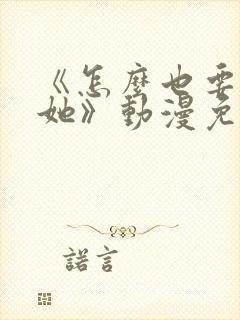 《怎麼也要
她》動漫免
諾言